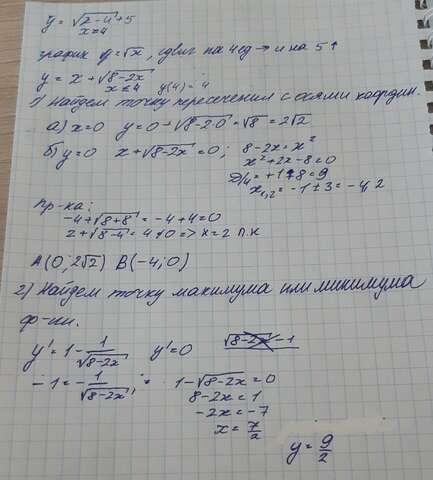 y = √(x-4) + 5
x ≥ 4
график y = √x, сдвиг на 4 ед → и на 5 ↑
y = x + √(8-2x)
x ≤ 4 y(4) = 4
1) Найдем точку пересечения с осями координ.
а) x=0 y = 0 + √(8-2·0) = √8 = 2√2
б) y=0 x + √(8-2x) = 0; 8-2x = x²
x² + 2x - 8 = 0
D/4 = +1+8 = 9
x₁,₂ = -1 ± 3 = -4; 2
пр-ка:
-4 + √(8+8) = -4 + 4 = 0
2 + √(8-4) = 4 ≠ 0 => x = 2 п.к
A(0, 2√2) B(-4; 0)
2) Найдем точку максимума или минимума
ф-ии.
y' = 1 - 1/√(8-2x) y' = 0 √(8-2x) - 1
-1 = -1/√(8-2x); 1 - √(8-2x) = 0
8 - 2x = 1
-2x = -7
x = 7/2
y = 9/2